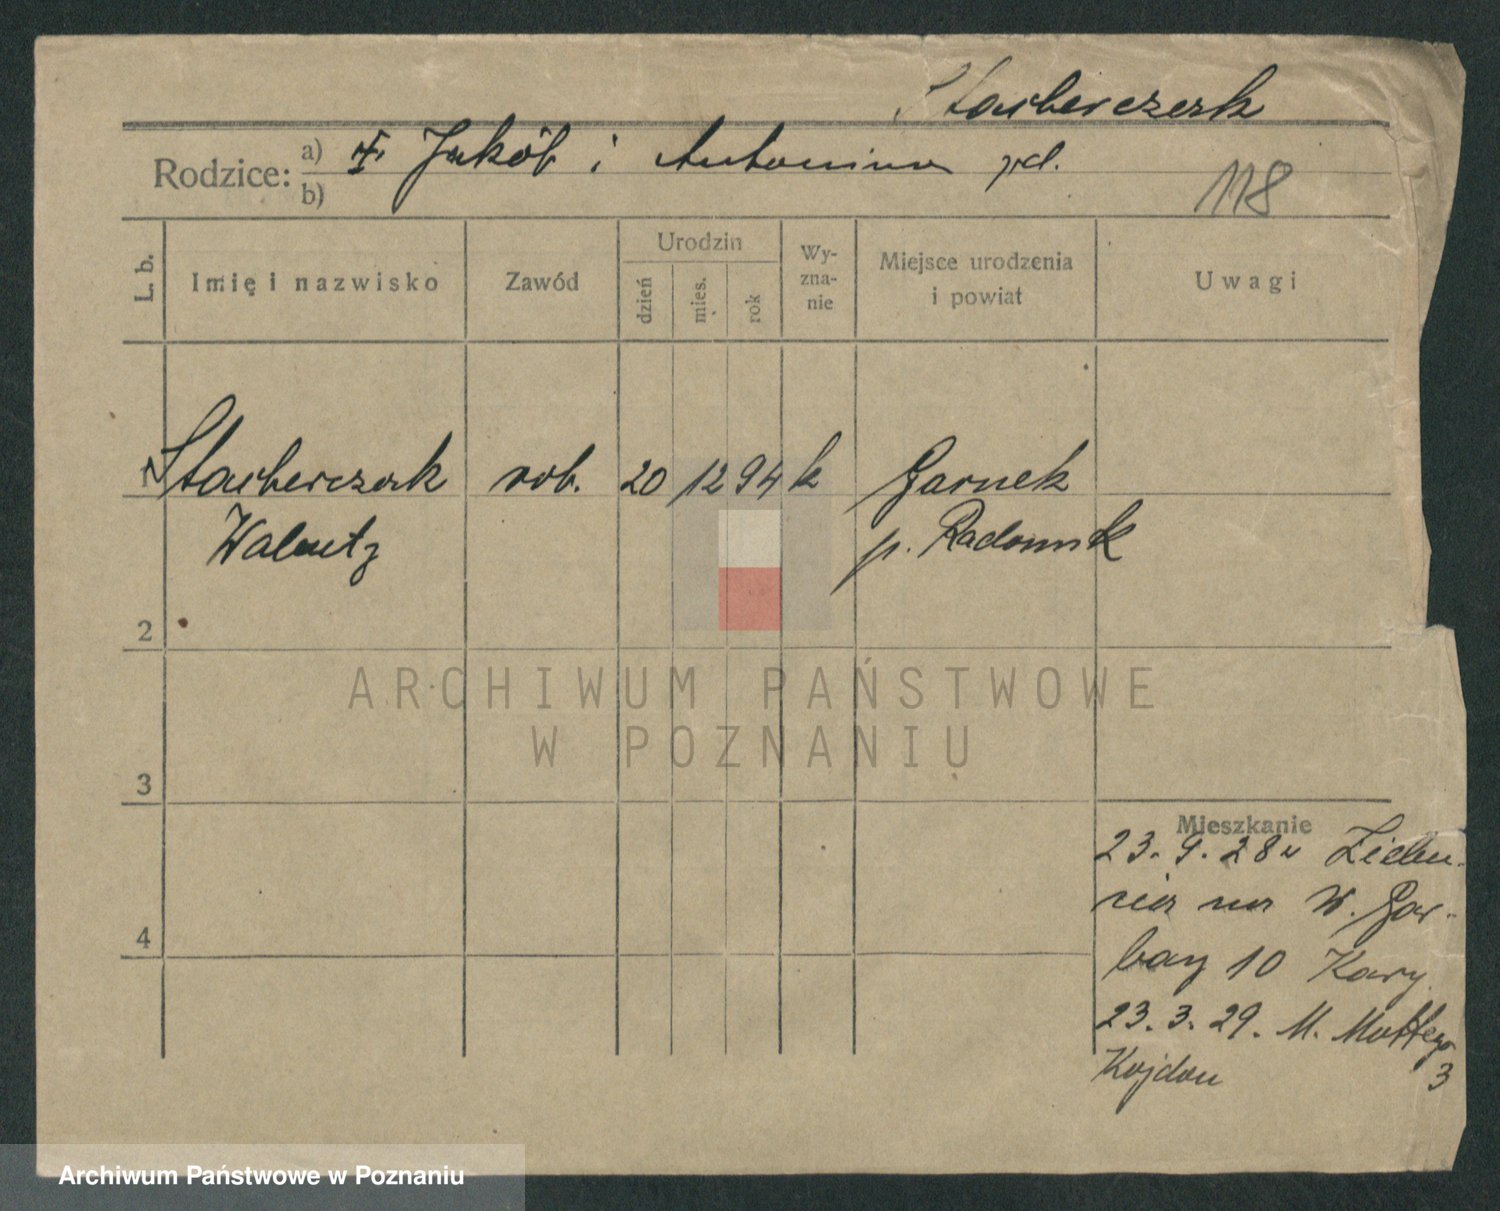 Stacherczak
Rodzice: a) Jakób i Antonina
b)
118
L. b. Imię i nazwisko Zawód Urodzin dzień mies. rok Wy-zna-nie Miejsce urodzenia i powiat Uwagi
Stacherczak rob. 20 12 94 k Garnek
p. Radomsk
2
3
Mieszkanie
23. 9. 28
W. Gar-
4
bary 10
23. 3. 29. M. Mottego
3
ARCHIWUM PAŃSTWOWE
W POZNANIU
Archiwum Państwowe w Poznaniu